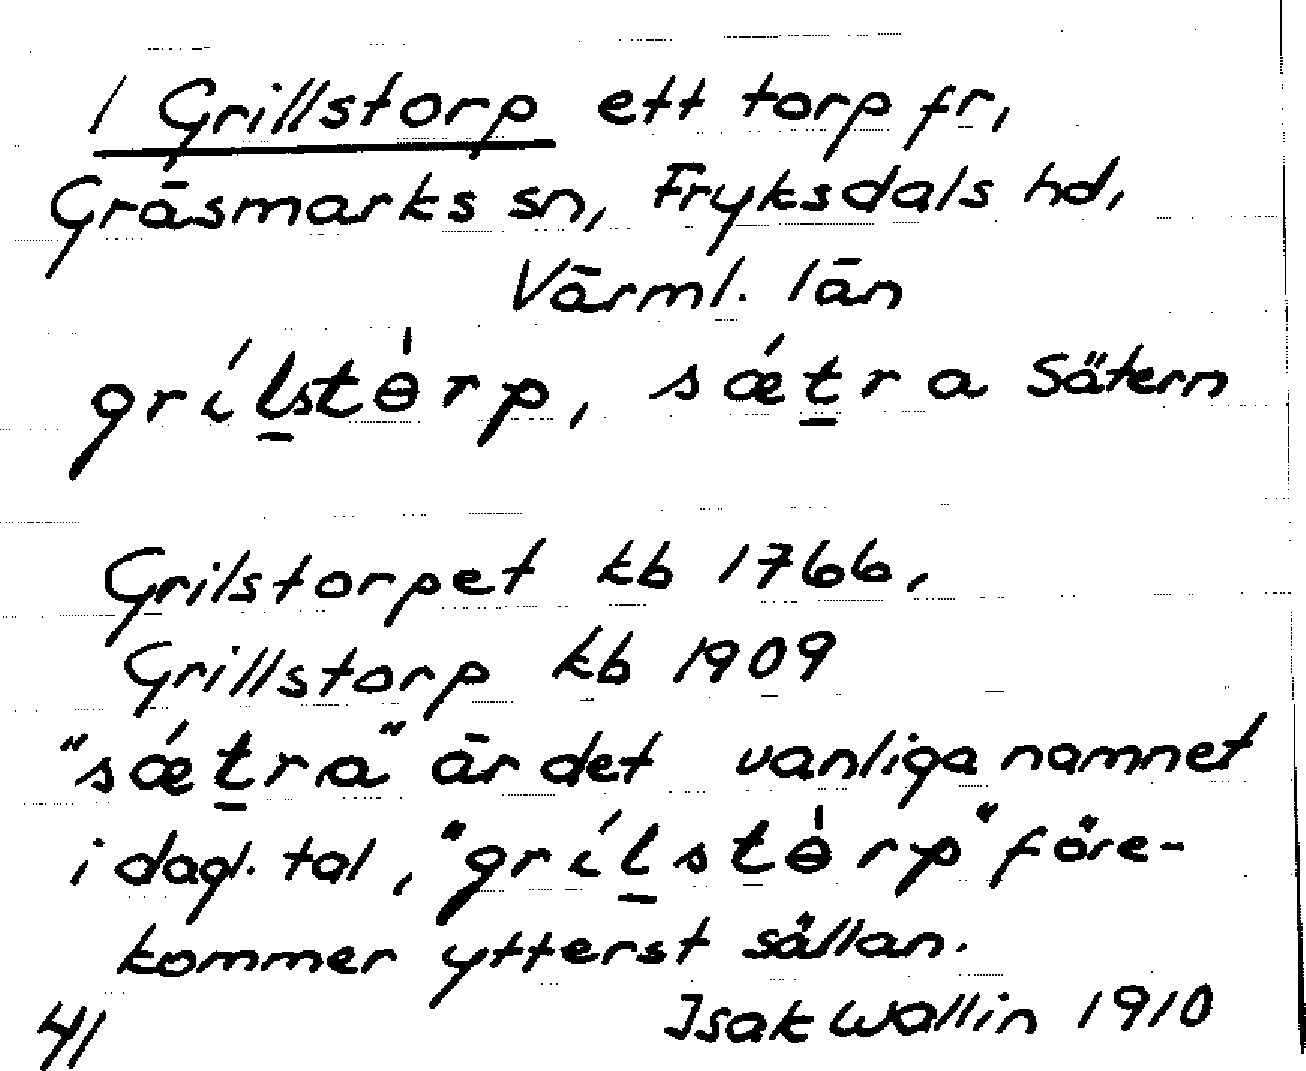 1 Grillstorp ett torp fr,
Gräsmarks sn, Fryksdals hd,
Värml. län
grílstɵ̍rp, sǽtra Sätern
Grilstorpet kb 1766,
Grillstorp kb 1909
"sǽtra" är det vanliga namnet
i dagl. tal, "grílstɵ̍rp" före-
kommer ytterst sällan.
41 Isak Wallin 1910